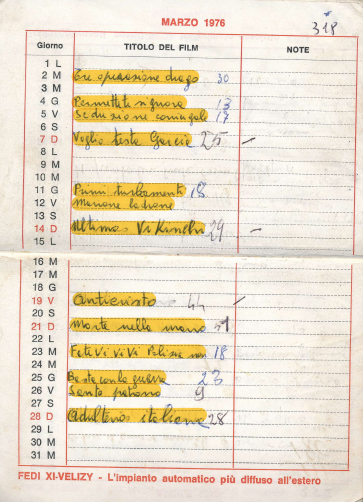 MARZO 1976
318
Giorno TITOLO DEL FILM NOTE
1 L
2 M Tre operazione drago 30
3 M
4 G Permettete signora 13
5 V Seduzione coniugale 17
6 S
7 D Voglio testa Garcia 25 —
8 L
9 M
10 M
11 G Primi turbamenti 18
12 V Marrone ladrone
13 S
14 D Ultimos Vi Kinghi 29 —
15 L
16 M
17 M
18 G
19 V Anticristo 44 —
20 S
21 D Morte nella mano 51
22 L
23 M Fate Vi Vi Vi Polizia non 18
24 M
25 G Basta con la guerra 23
26 V Santo patrono 9
27 S
28 D Adulterio italiana 28
29 L
30 M
31 M
FEDI XI-VELIZY - L'impianto automatico più diffuso all'estero